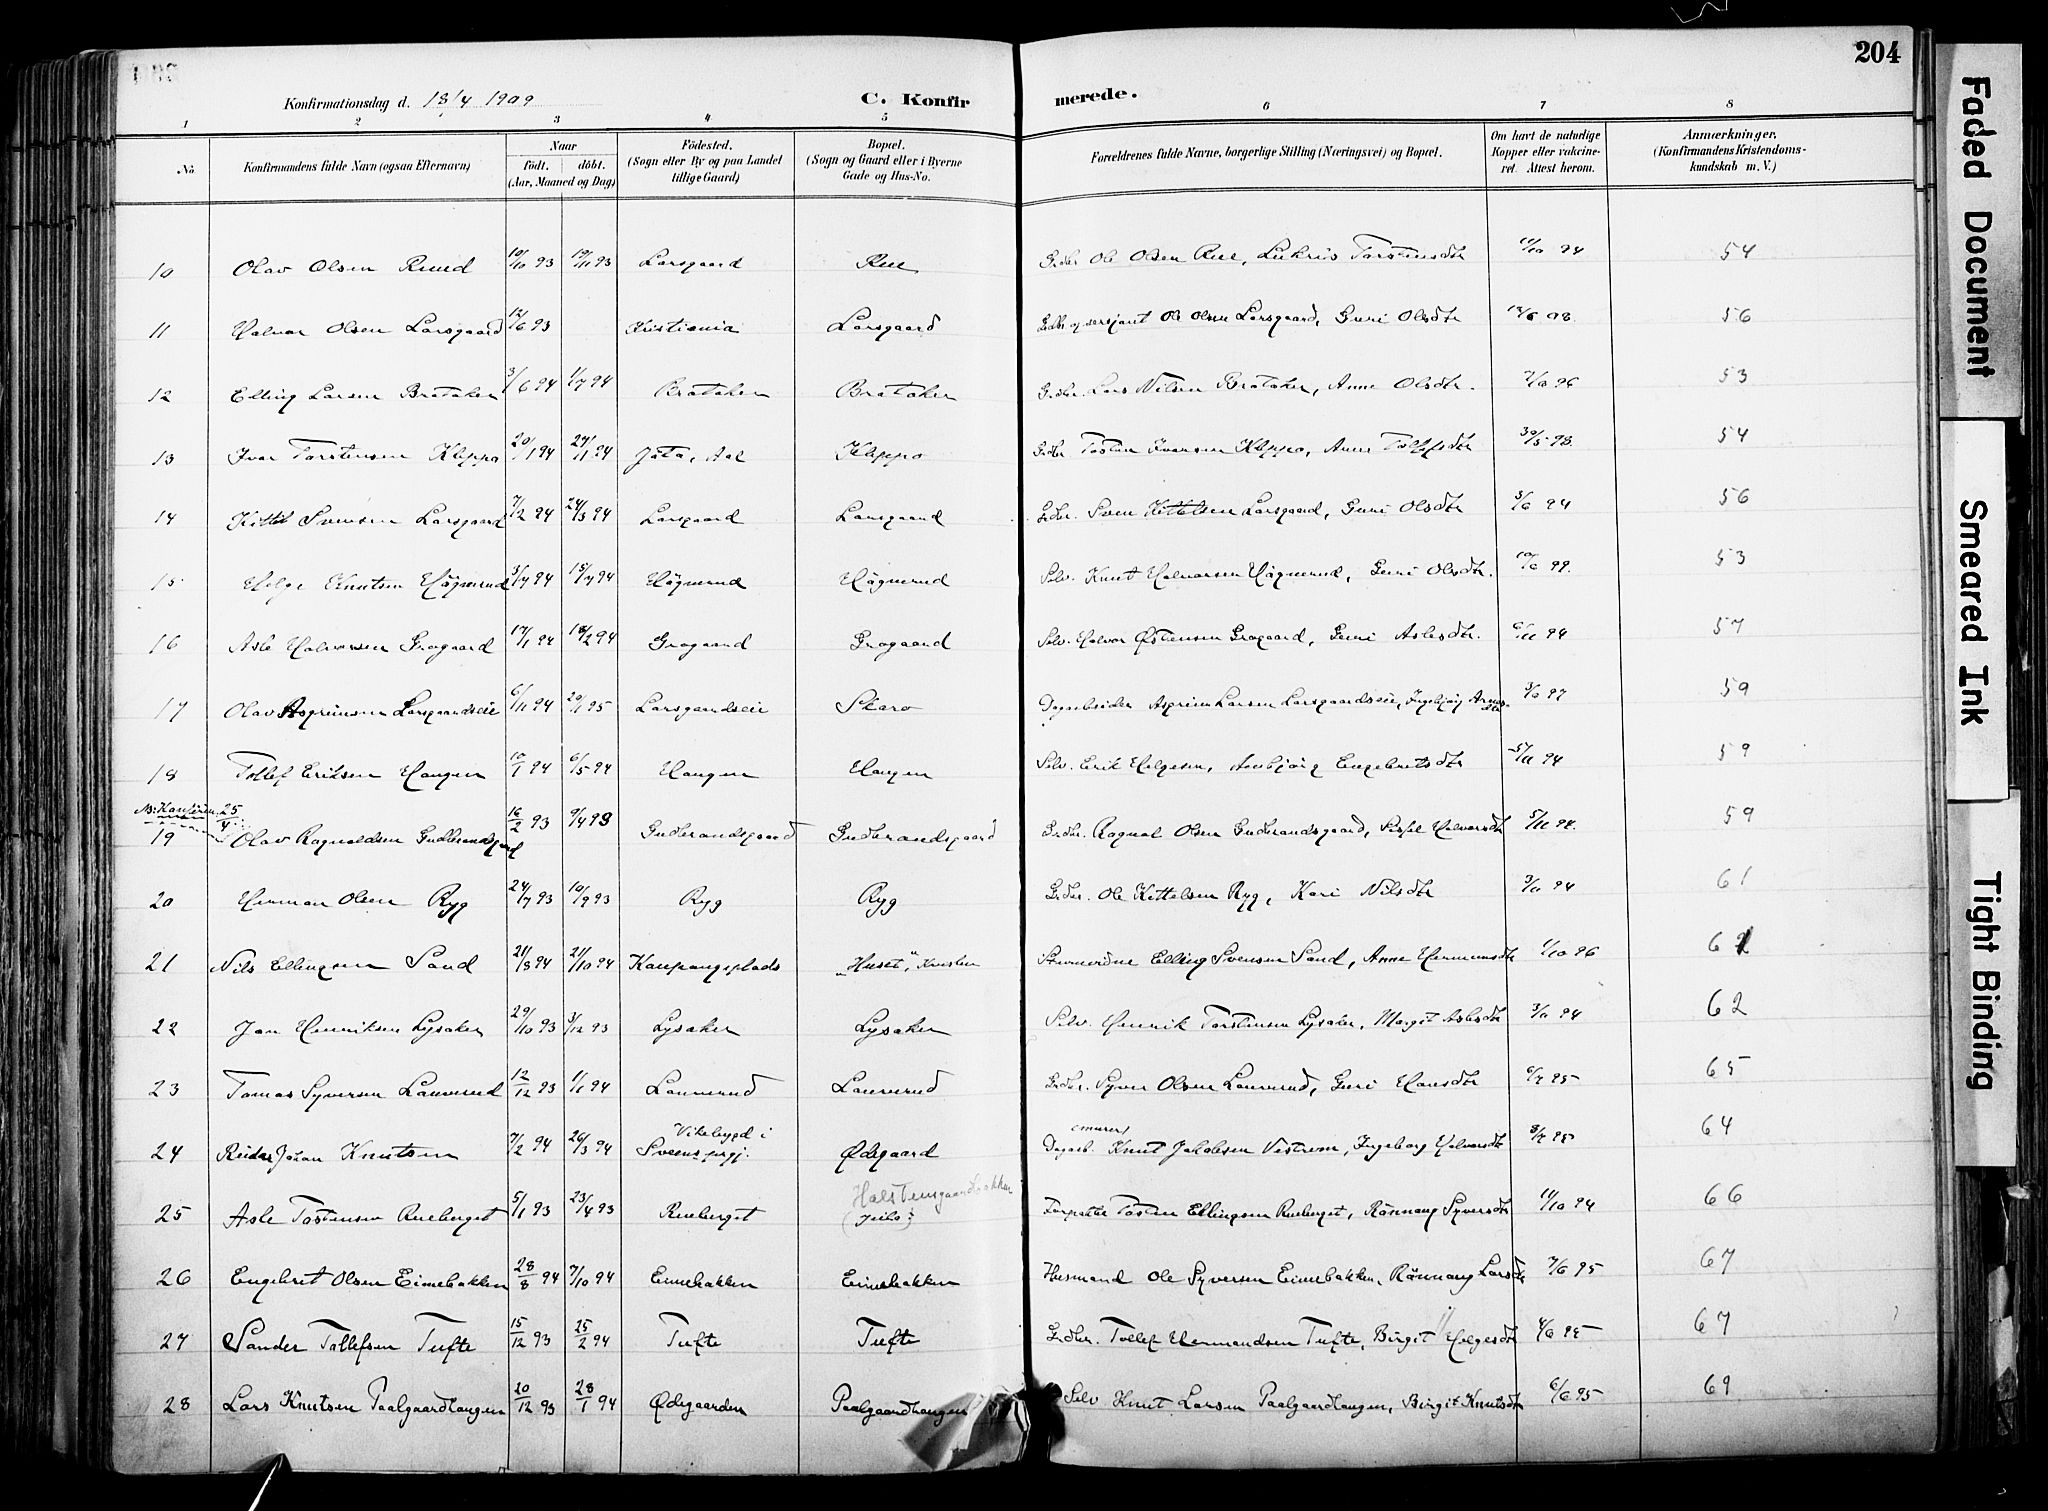 204
Konfirmationsdag d. 18/4 1909
C. Konfirmerede.
1 2 3 4 5 6 7 8
No. Konfirmandens fulde Navn (ogsaa Efternavn) Naar födt. döbt. (Aar, Maaned og Dag) Födested. (Sogn eller By og paa Landet tillige Gaard) Bopæl. (Sogn og Gaard eller i Byerne Gade og Hus-No. Forældrenes fulde Navne, borgerlige Stilling (Næringsvei) og Bopæl. Om havt de naturlige Kopper eller vakcineret. Attest herom. Anmærkninger. (Konfirmandens Kristendomskundskab m. V.)
10 Olav Olsen Ruud 10/10 93 19/11 93 Larsgaard Rue Grdbr Ole Olsen Rue, Torstensdtr 94 54
11 Halvor Olsen Larsgaard 12/6 93 Kristiania Larsgaard Grdbr og sersjant Ole Olsen Larsgaard, Guri Olsdtr 56
12 Elling Larsen Brataker 3/6 94 1/7 94 Brataker Brataker Grdbr. Lars Nilsen Brataker, Anne Olsdtr. 96 53
13 Ivar Torstensen Kleppo 20/1 94 Aal Kleppo Grdbr Tosten Ivarsen Kleppo, Anne Tollefsdtr 30/5 98. 54
14 Kittil Svensen Larsgaard 7/2 94 24/3 94 Larsgaard Larsgaard Grdbr. Sven Kittelsen Larsgaard, Guri Olsdtr 3/6 94 56
15 Helge Knutsen Högnerud 3/7 94 15/7 94 Högnerud Högnerud Selv. Knut Halvorsen Högnerud, Guri Olsdtr. 99. 53
16 Asle Halvorsen Grogaard 17/1 94 18/2 94 Grogaard Grogaard Selv. Halvor Østensen Grogaard, Guri Aslesdtr. 6/11 94 57
17 Olav Asgrimsen Larsgaardseie 6/11 94 20/1 95 Larsgardseie Skaro Dagarbeider Asgrim Larsen Larsgaardseie, Ingebjørg 97 59
18 Tollef Eriksen Haugen 10/1 94 6/5 94 Haugen Haugen Selv. Erik Helgesen, Engebretsdtr 5/11 94 59
NB: Konfirm. 25/4
19 Olav Ragnvaldsen Gudbrandsgaard 16/2 93 9/4 93 Gudbrandsgaard Gudbrandsgaard Grdbr. Ragnval Olsen Gudbrandsgaard, Sissel Halvorsdtr 5/11 94. 59
20 Herman Olsen Ryg 24/7 93 10/9 93 Ryg Ryg Grdbr. Ole Kittelsen Ryg, Kari Nilsdtr 94 61
21 Nils Ellingsen Sand 21/8 94 21/10 94 Kaupangsplads "Huset", Kvislen Elling Svensen Sand, Anne Hermundsdtr 1/10 96 62
22 Jan Henriksen Lysaker 29/10 93 3/12 93 Lysaker Lysaker Selv. Henrik Torstensen Lysaker, Margit Aslesdtr 94 62
23 Tomas Syversen Lauverud 12/12 93 1/1 94 Lauverud Lauverud Grdbr. Syver Olsen Lauverud, Guri Hansdtr 95 65
24 Reidar Johan Knutsen 7/2 94 26/3 94 Vikebygd i Sveens prgj. Ødegaard Dagarb. (murer) Knut Jakobsen Vestrem, Ingeborg Halvorsdtr 95 64
25 Asle Tostensen Rueberget 5/1 93 23/4 93 Rueberget Halstensgaardbakken Forpakter Tosten Ellingsen Rueberget, Rönnaug Syversdtr 11/10 94 66
26 Engebret Olsen Eimebakken 28/8 94 7/10 94 Eimebakken Eimebakken Husmand Ole Syversen Eimebakken, Rönnaug Larsdtr 7/6 95 67
27 Sander Tollefsen Tufte 15/12 93 25/2 94 Tufte Tufte Grdbr. Tollef Hermandsen Tufte, Birgit Helgesdtr 4/6 95 67
28 Lars Knutsen Paalgaardhaugen 20/12 93 28/1 94 Ødegaarden Paalgaardhaugen Selv Knut Larsen Paalgaardhaugen, Birgit Knutsdtr 6/6 95 69
Faded Document
Smeared Ink
Tight Binding